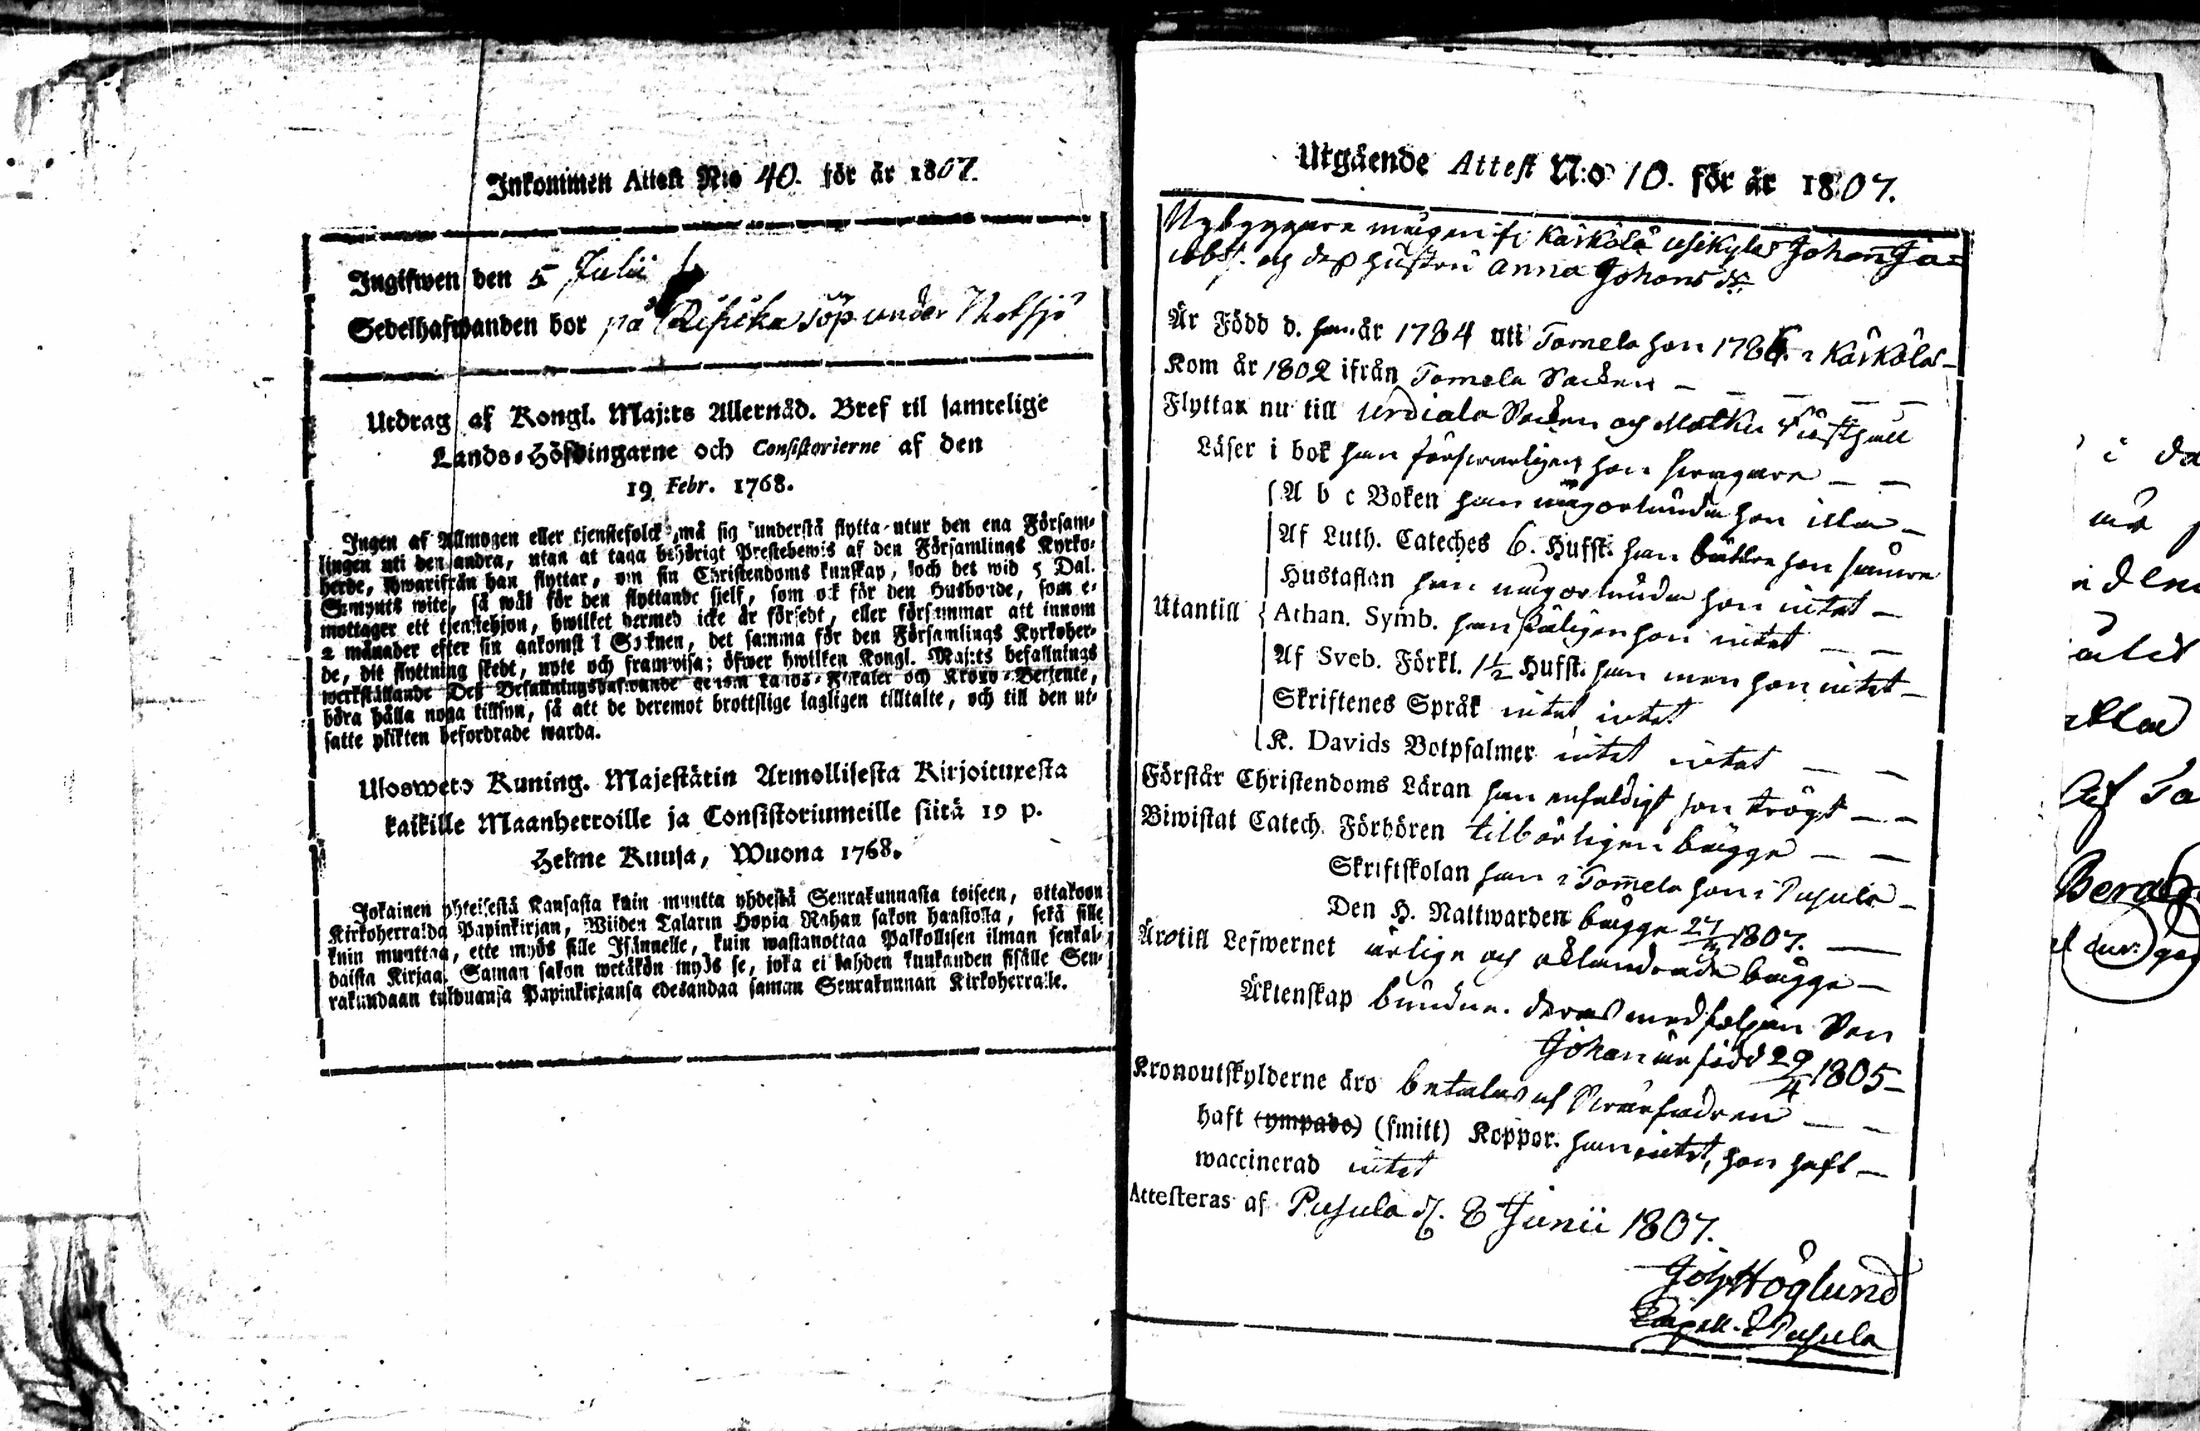 Inkommen Attest N:o 40. för år 1807.
Ingifwen den 5 Julii
Sedelhafwanden bor på
Utdrag af Kongl. Maj:ts Allernåd. Bref til samtelige
Lands-Höfdingarne och Consistorierne af den
19 Febr. 1768.
Ingen af Allmogen eller tjenstefolck, må sig understå flytta utur den ena Försam-
lingen uti den andra, utan at taga behörigt Prestebewis af den Församlings Kyrko-
herde, hwarifrån han flyttar, om sin Christendoms kunskap, och det wid 5 Dal.
S:mynts wite, så wäl för den flyttande sjelf, som ock för den Husbonde, som e-
mottager ett tjenstehjon, hwilket dermed icke är försedt, eller försummar att innom
2 månader efter sin ankomst i Soknen, det samma för den Församlings Kyrkoher-
de, dit flyttning skedt, upte och framwisa; öfwer hwilken Kongl. Maj:ts befallnings
werkställande Des Befallningshafwande genom Lands-Fiskaler och Krono-Betjente,
böra hålla noga tillsyn, så att de deremot brottslige lagligen tilltalte, och till den ut-
satte plikten befordrade warda.
Ulosweto Kuning. Majestätin Armollisesta Kirjoituxesta
kaikille Maanherroille ja Consistoriumeille siitä 19 p.
Helme Kuusa, Wuona 1768.
Jokainen yhteisestä Kansasta kuin muutta yhdestä Seurakunnasta toiseen, ottakoon
Kirkoherralda Papinkirjan, Wiiden Talarin Hopia Rahan sakon haastolla, sekä sille
kuin muuttaa, ette myös sille Isännelle, kuin wastanottaa Palkollisen ilman senkal-
daista Kirjaa. Saman sakon wetäkön myös se, joka ei kahden kuukauden sisälle Seu-
rakundaan tulduansa Papinkirjansa edesandaa saman Seurakunnan Kirkoherralle.
Utgående Attest N:o 10. för år 1807.
Nybyggare mågen fr Kärkölä Johan Ja=
cobss. och dess hustru Anna Johans dr
Är Född d. han år 1784 uti Tamela hon 178 i Kärkölä –
Kom år 1802 ifrån Tamela Socken – – – –
Flyttar nu till Urdiala Socken och Matku
Läser i bok han förswarligen hon swagare – –
Utantill
A b c Boken han någorlunda hon illa –
Af Luth. Cateches 6. Hufst: han bättre hon sämre
Hustaflan han någorlunda hon intet –
Athan. Symb. han hon intet – –
Af Sveb. Förkl. 1½ Hufst: han men hon intet –
Skriftenes Språk intet intet
K. Davids Botpsalmer intet intet – –
Förstår Christendoms Läran han enfaldigt hon trögt – –
Biwistat Catech. Förhören tilbörligen bägge – –
Skriftskolan han i Tamela hon i Pusula –
Den H. Nattwarden bägge 1807. –
Äro till Lefwernet ärlige och oklandrade bägge –
Äktenskap bundne. deras medfölgen Son
Johan är född 29/4 1805 –
Kronoutskylderne äro betalas af Swärfadren – –
haft (ympade) (smitt) Koppor. han intet, hon haft –
waccinerad intet
Attesteras af Pusula d. 8 Junii 1807.
Joh Höglund
Capell. i Pusula